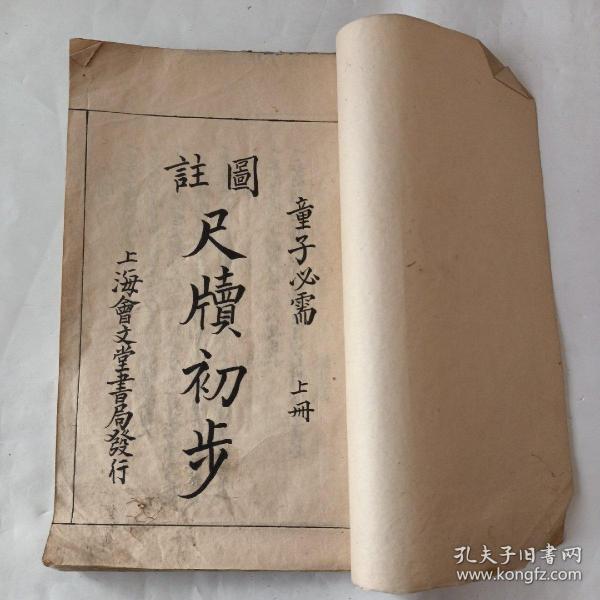 童子必需 上冊
圖註
尺牘初步
上海會文堂書局發行
孔夫子旧书网
www.kongfz.com